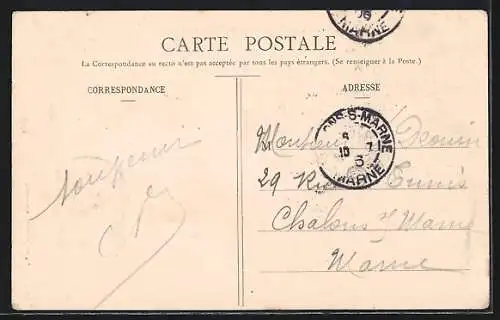 08
MARNE
CARTE POSTALE
La Correspondance au recto n'est pas acceptée par tous les pays étrangers. (Se renseigner à la Poste.)
CORRESPONDANCE
ADRESSE
ONS-S-MARNE
8
10 7
MARNE
Monsieur
29 Rue
Chalons s/ Marne
Marne